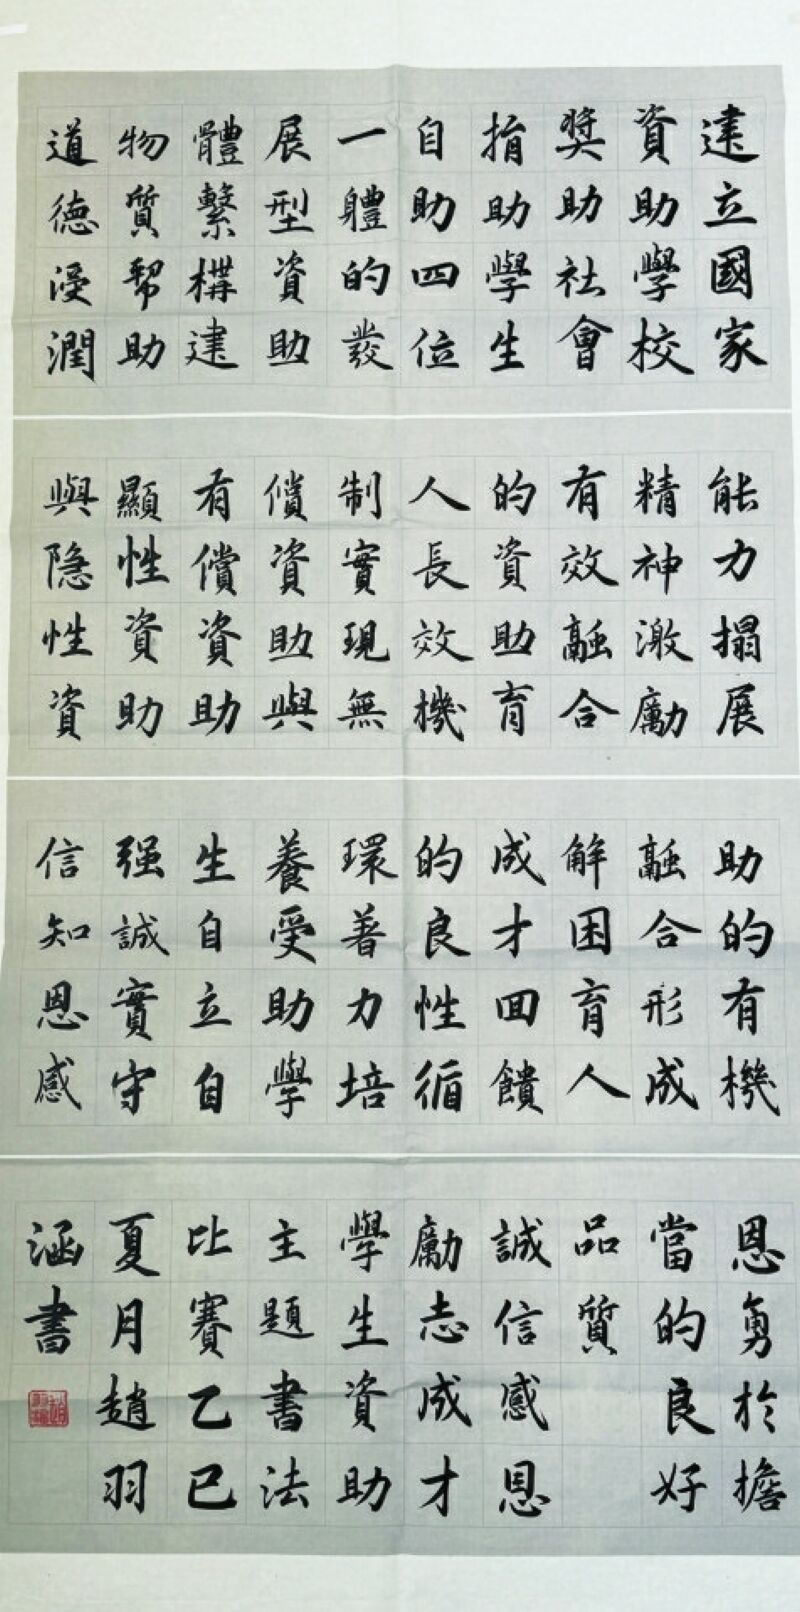 建立國家
資助學校
獎助社會
捐助學生
自助四位
一軆的發
展型資助
體繫構建
物質幫助
道德浸潤
能力搨展
精神激勵
有效融合
的資助育
人長效機
制實現無
償資助與
有償資助
顯性資助
與隐性資
助的有機
融合形成
解困育人
成才回饋
的良性循
環著力培
養受助學
生自立自
强誠實守
信知恩感
恩勇於擔
當的良好
品質
誠信感恩
勵志成才
學生資助
主題書法
比賽乙巳
夏月趙羽
涵書